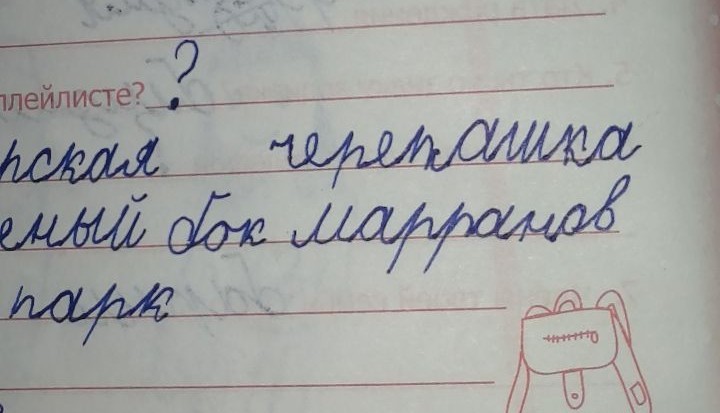 плейлисте? ?
рская черепашка
емый бок марранов
парк